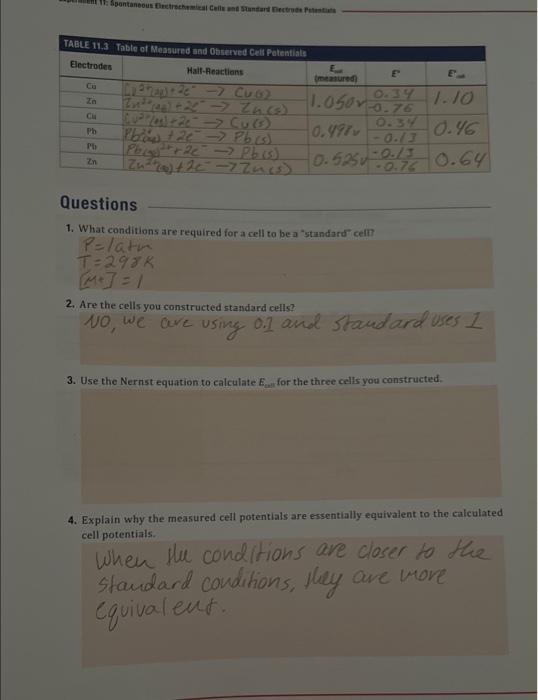 11: Spontaneous Electrochemical Cells and Standard Electrode Potentials
TABLE 11.3 Table of Measured and Observed Cell Potentials
Electrodes Half-Reactions E (measured) E° E°cell
Cu Cu²⁺(aq) + 2e⁻ → Cu(s) 1.050v 0.34 1.10
Zn Zn²⁺(aq) + 2e⁻ → Zn(s) -0.76
Cu Cu²⁺(aq) + 2e⁻ → Cu(s) 0.34 0.46
Pb Pb²⁺(aq) + 2e⁻ → Pb(s) -0.13
Pb Pb(aq)²⁺ + 2e⁻ → Pb(s) 0.525v -0.13 0.64
Zn Zn²⁺(aq) + 2e⁻ → Zn(s) -0.76
Questions
1. What conditions are required for a cell to be a "standard" cell?
P=1atm
T=298K
[M+]=1
2. Are the cells you constructed standard cells?
NO, we are using 0.1 and standard uses 1
3. Use the Nernst equation to calculate Ecell for the three cells you constructed.
4. Explain why the measured cell potentials are essentially equivalent to the calculated
cell potentials.
When the conditions are closer to the
standard conditions, they are more
equivalent.